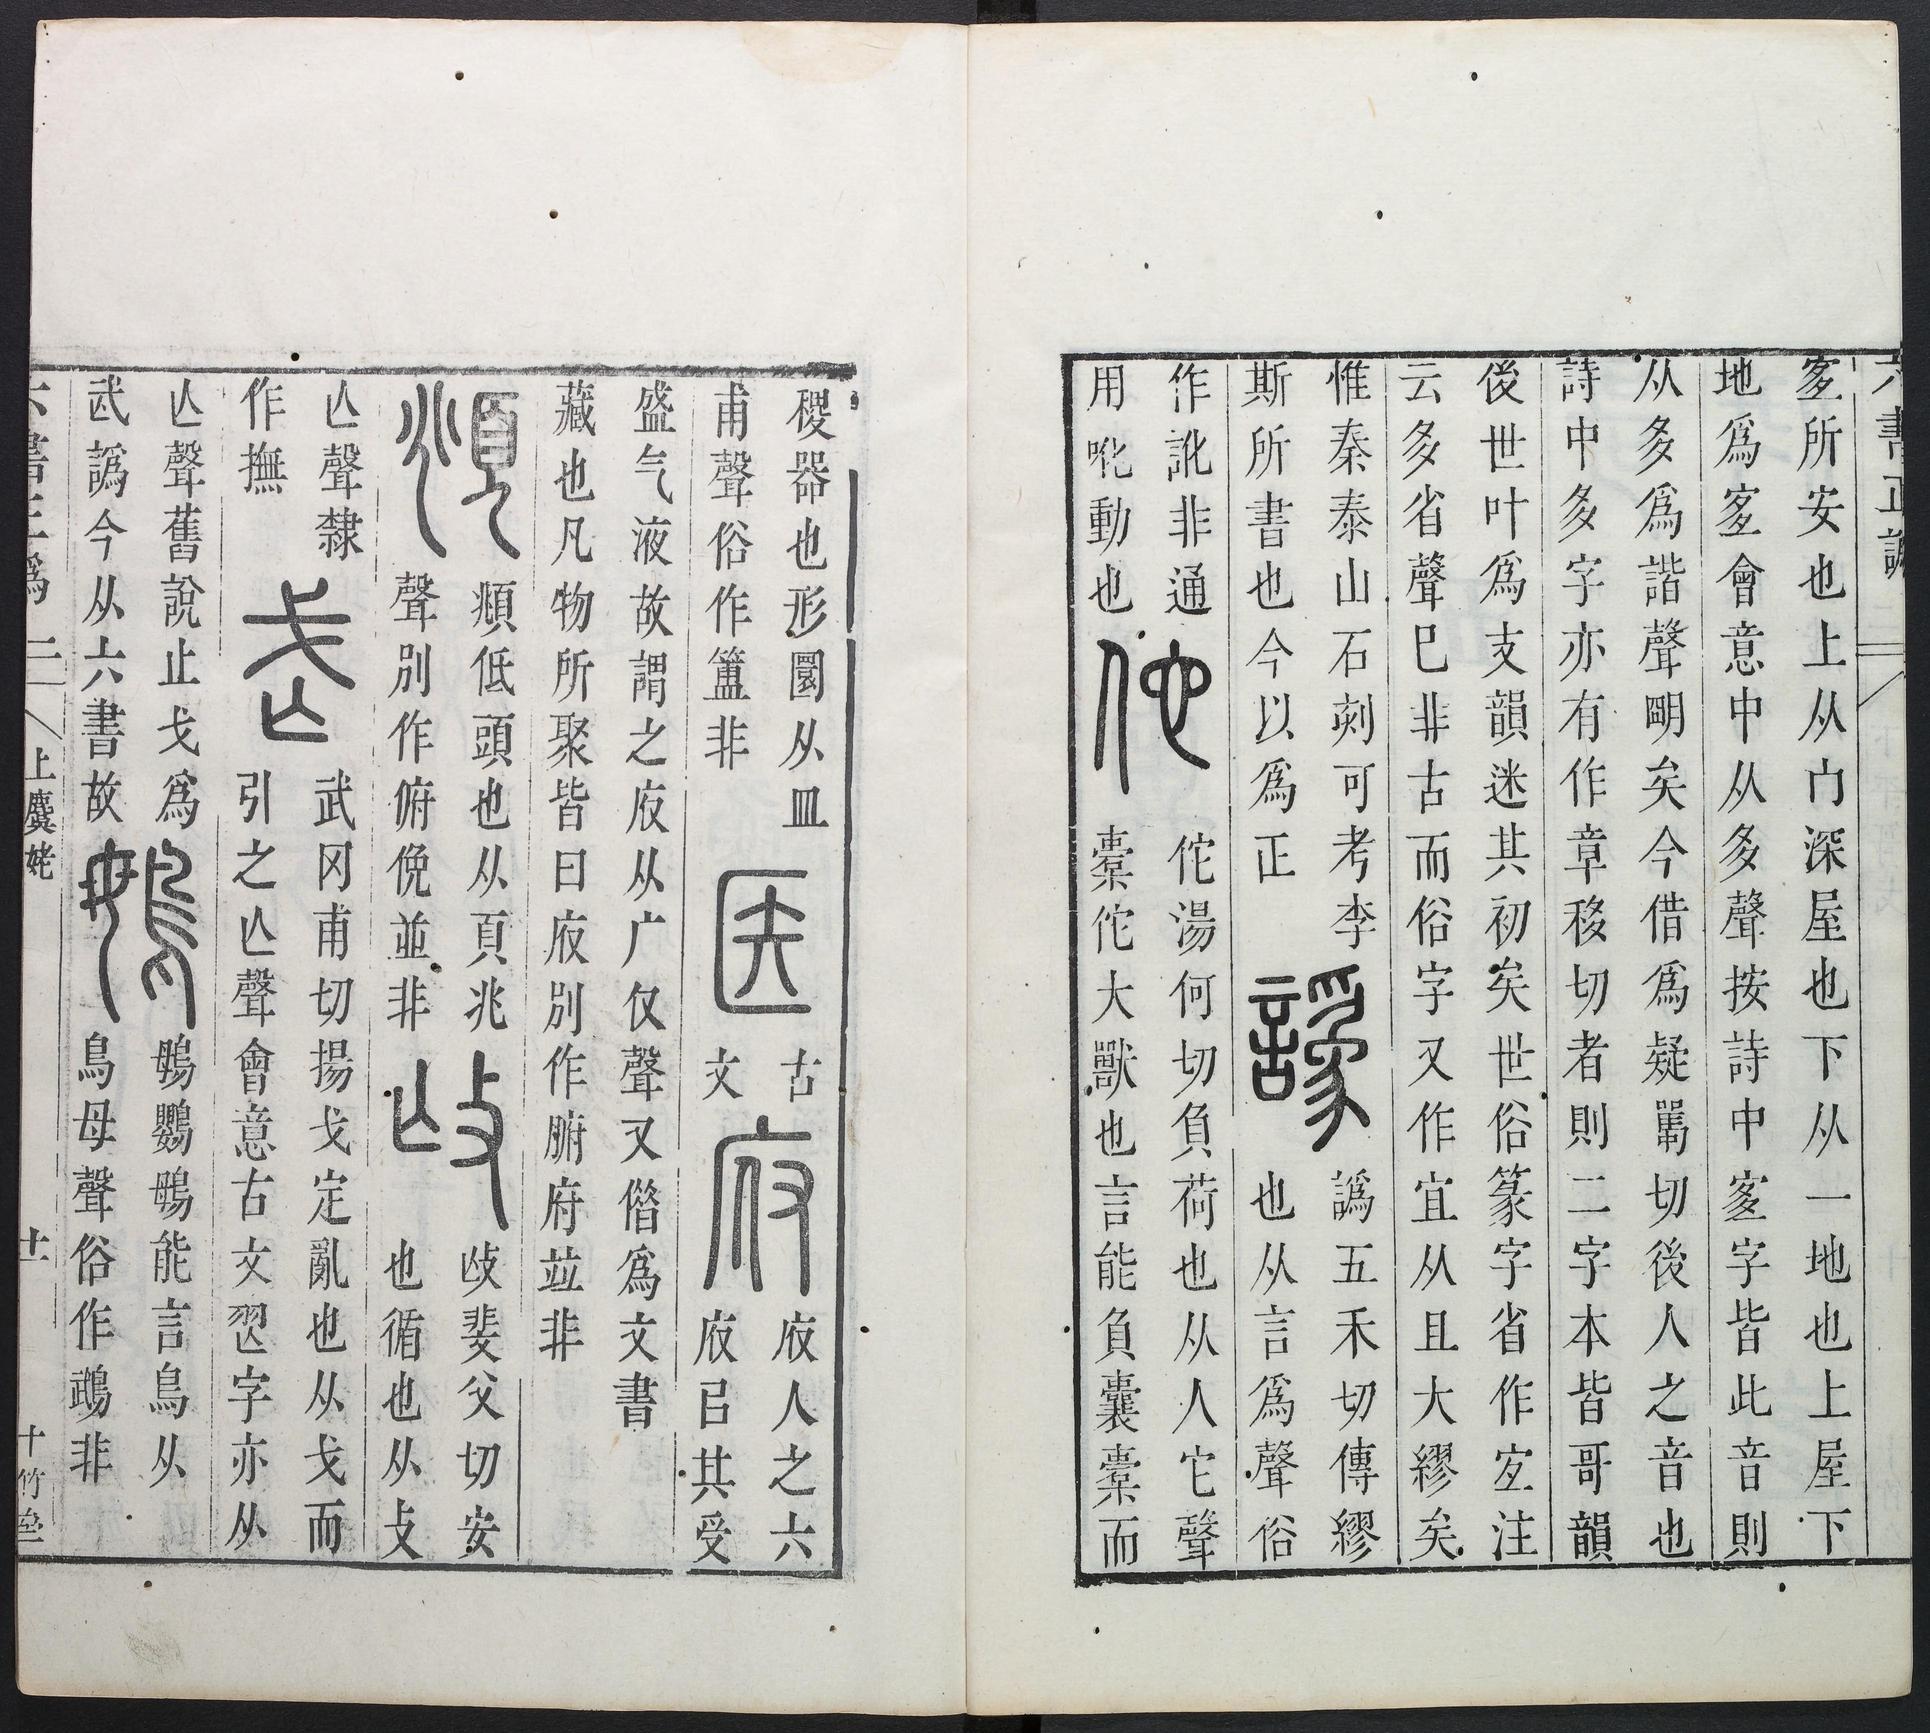 六書正譌
宐所安也上从冂深屋也下从一地也上屋下
地爲宐會意中从多聲按詩中宐字皆此音則
从多爲諧聲朙矣今借爲疑羇切後人之音也
詩中多字亦有作章移切者則二字本皆哥韻
後世叶爲支韻迷其初矣世俗篆字省作宐注
云多省聲巳非古而俗字又作宜从且大繆矣
惟秦泰山石刻可考李
斯所書也今以爲正
譌
譌五禾切傳繆
也从言爲聲俗
作訛非通
用吪動也
佗
佗湯何切負荷也从人它聲
橐佗大獸也言能負囊橐而
稷器也形圜从皿
甫聲俗作簠非
医
古
文
府
府人之六
府㠯其受
盛气液故謂之府从广仅聲又偺爲文書
藏也凡物所聚皆曰府別作腑府並非
頫
頫低頭也从頁兆
聲別作俯俛並非
㩇
㩇斐父切安
也循也从攴
亾聲隸
作撫
武
武冈甫切揚戈定亂也从戈而
引之亾聲會意古文䂀字亦从
亾聲舊說止戈爲
武譌今从六書故
䳇
䳇鸚䳇能言鳥从
鳥母聲俗作鵡非
六書正譌 二
上麌姥
十二
十竹堂